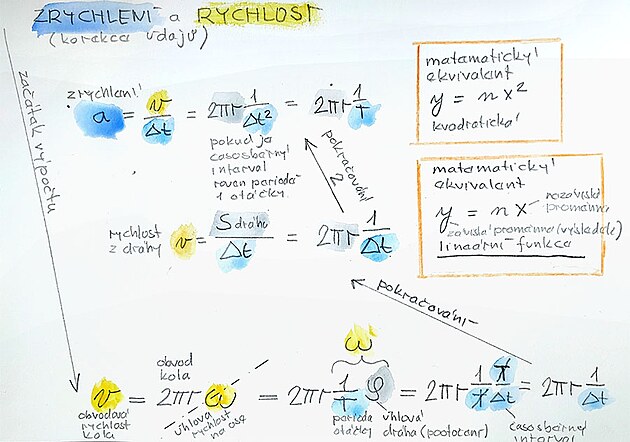 ZRYCHLENÍ a RYCHLOST
(korekce údajů)
začátek výpočtu
zrychlení
a = v/Δt = 2πr 1/Δt² = 2πr 1/T
pokud je
časosběrný
interval
roven periodě
1 otáčky
matematický
ekvivalent
y = nx²
kvadratická
matematický
ekvivalent
y = nx
nezávislá
proměnná
závislá proměnná (výsledek)
lineární funkce
pokračování
2
rychlost
z dráhy
v = S dráhy/Δt = 2πr 1/Δt
pokračování
ω
obvod
kola
v = 2πr ω = 2πr 1/T φ = 2πr 1/T T/Δt = 2πr 1/Δt
obvodová
rychlost
kola
úhlová
rychlost
na ose
perioda
otáčky
úhlová
dráha (pootočení)
časosběrný
interval